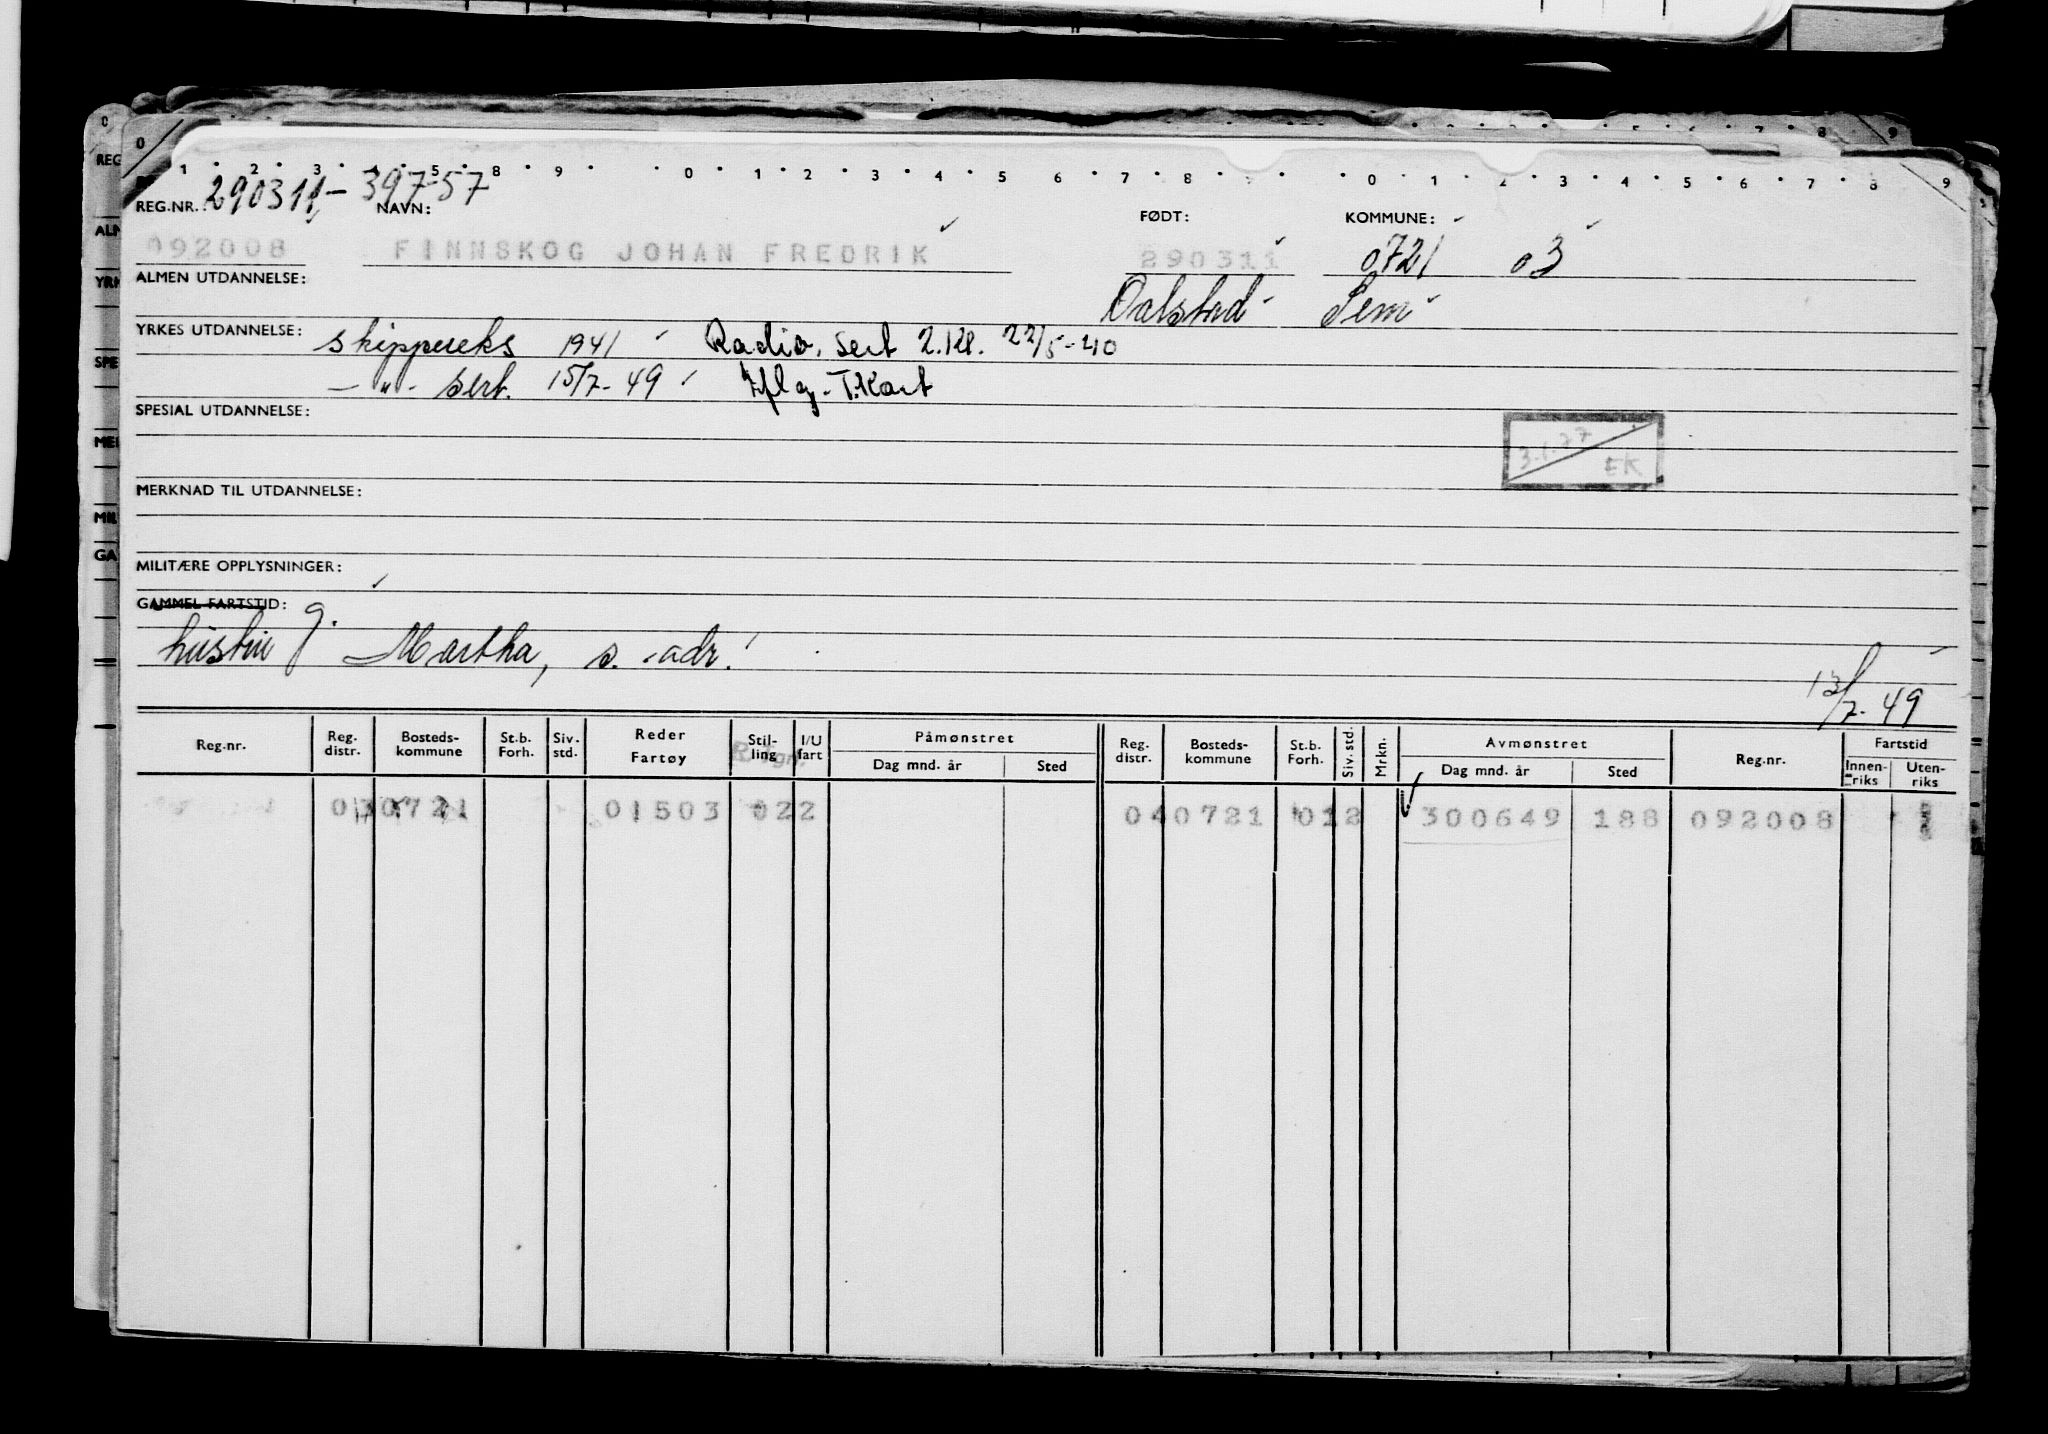 0 1 2 3 5 8 9 0 1 2 3 4 5 7 8 0 1 2 3 4 5 6 7 8 9
290311 - 39757
REG.NR.: NAVN: FØDT: KOMMUNE:
092008 FINNSKOG JOHAN FREDRIK 290311 0721 03
ALMEN UTDANNELSE: Oalstad Sem
YRKES UTDANNELSE: skippereks 1941 Radio. sert 2.kl. 22/5-40
- " - sert. 15/7-49 Iflg. T.Kort
SPESIAL UTDANNELSE:
3.1.77 EK
MERKNAD TIL UTDANNELSE:
MILITÆRE OPPLYSNINGER:
GAMMEL FARTSTID: g.
hustru Martha, s. adr.
13/7-49
Reg.nr. Reg. distr. Bosteds-kommune St.b. Forh. Siv. std. Reder Fartøy Stil-ling I/U fart Påmønstret Dag mnd. år Sted Reg. distr. Bosteds-kommune St.b. Forh. Siv. std. Mrkn. Avmønstret Dag mnd. år Sted Reg.nr. Fartstid Innen-riks Uten-riks
030721 01503 022 040721 012 300649 188 092008